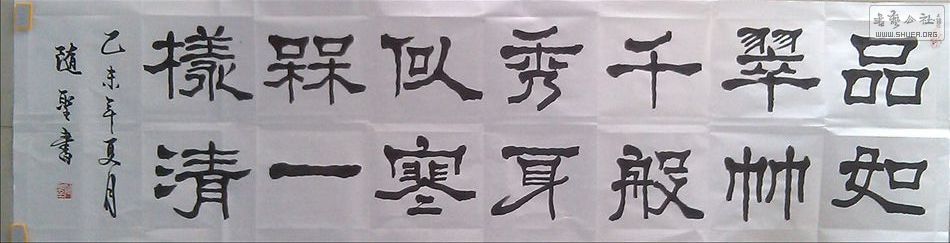 品如
翠竹
千般
秀身
似寒
槑一
樣清
乙未年夏月
隨聖書
书艺公社
WWW.SHUFA.ORG